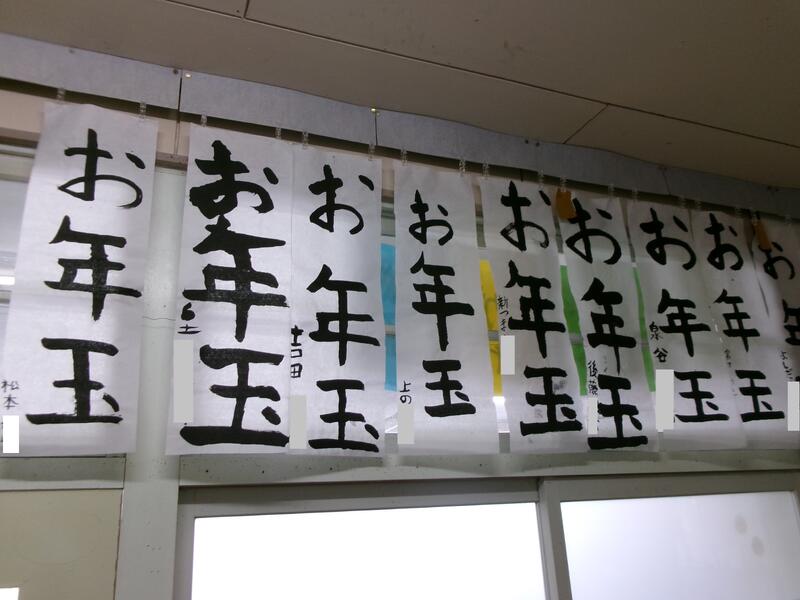 お年玉
松本
お年玉
お年玉
吉田
お年玉
上の
お年玉
お年玉
後藤
お年玉
泉谷
お年玉
お年